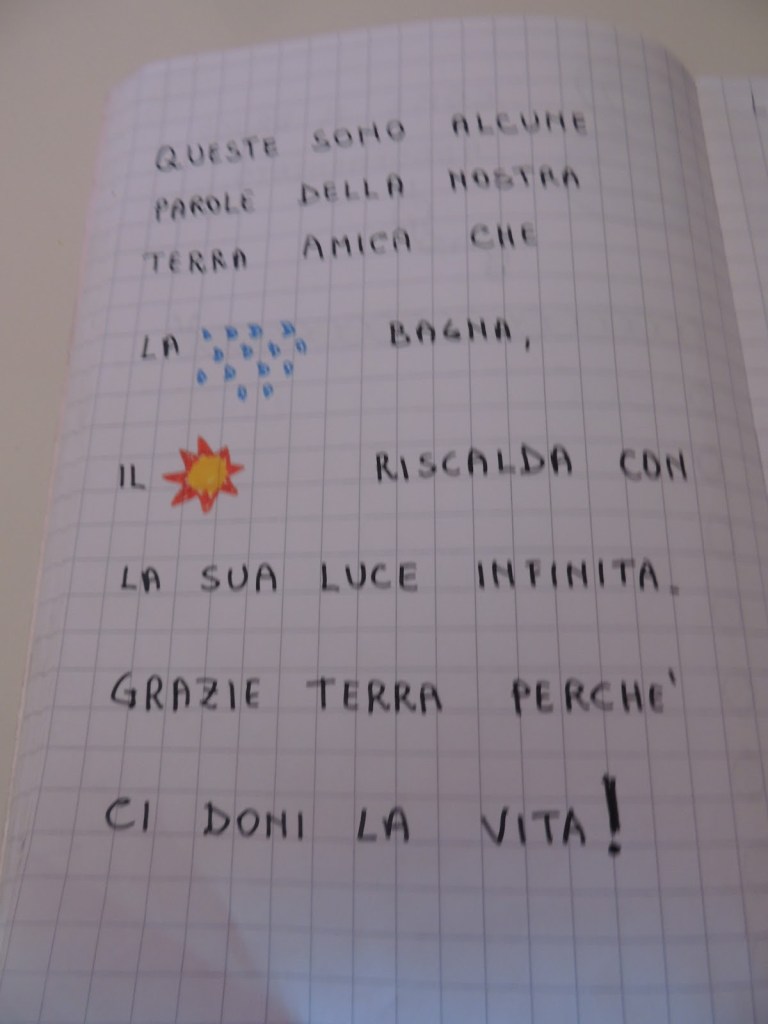 QUESTE SONO ALCUNE
PAROLE DELLA NOSTRA
TERRA AMICA CHE
LA BAGNA,
IL RISCALDA CON
LA SUA LUCE INFINITA.
GRAZIE TERRA PERCHE'
CI DONI LA VITA!